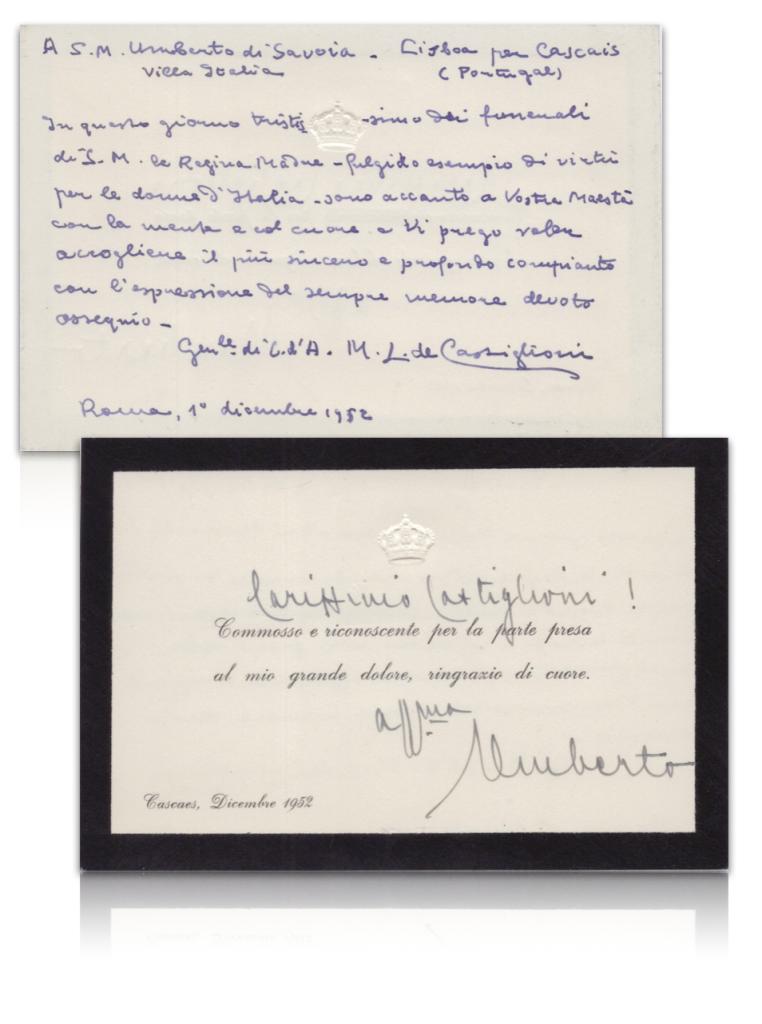 A S.M. Umberto di Savoia - Lisboa per Cascais
Villa Italia (Portugal)
In questo giorno tristis-simo dei funerali
di S. M. la Regina Madre - fulgido esempio di virtù
per le donne d'Italia - sono accanto a Vostra Maestà
con la mente e col cuore e Vi prego voler
accogliere il più sincero e profondo compianto
con l'espressione del sempre memore devoto
ossequio -
Gen.le di C. d'A. M. L. de Castiglioni
Roma, 1° dicembre 1952
Carissimo Castiglioni !
Commosso e riconoscente per la parte presa
al mio grande dolore, ringrazio di cuore.
aff.mo
Umberto
Cascaes, Dicembre 1952